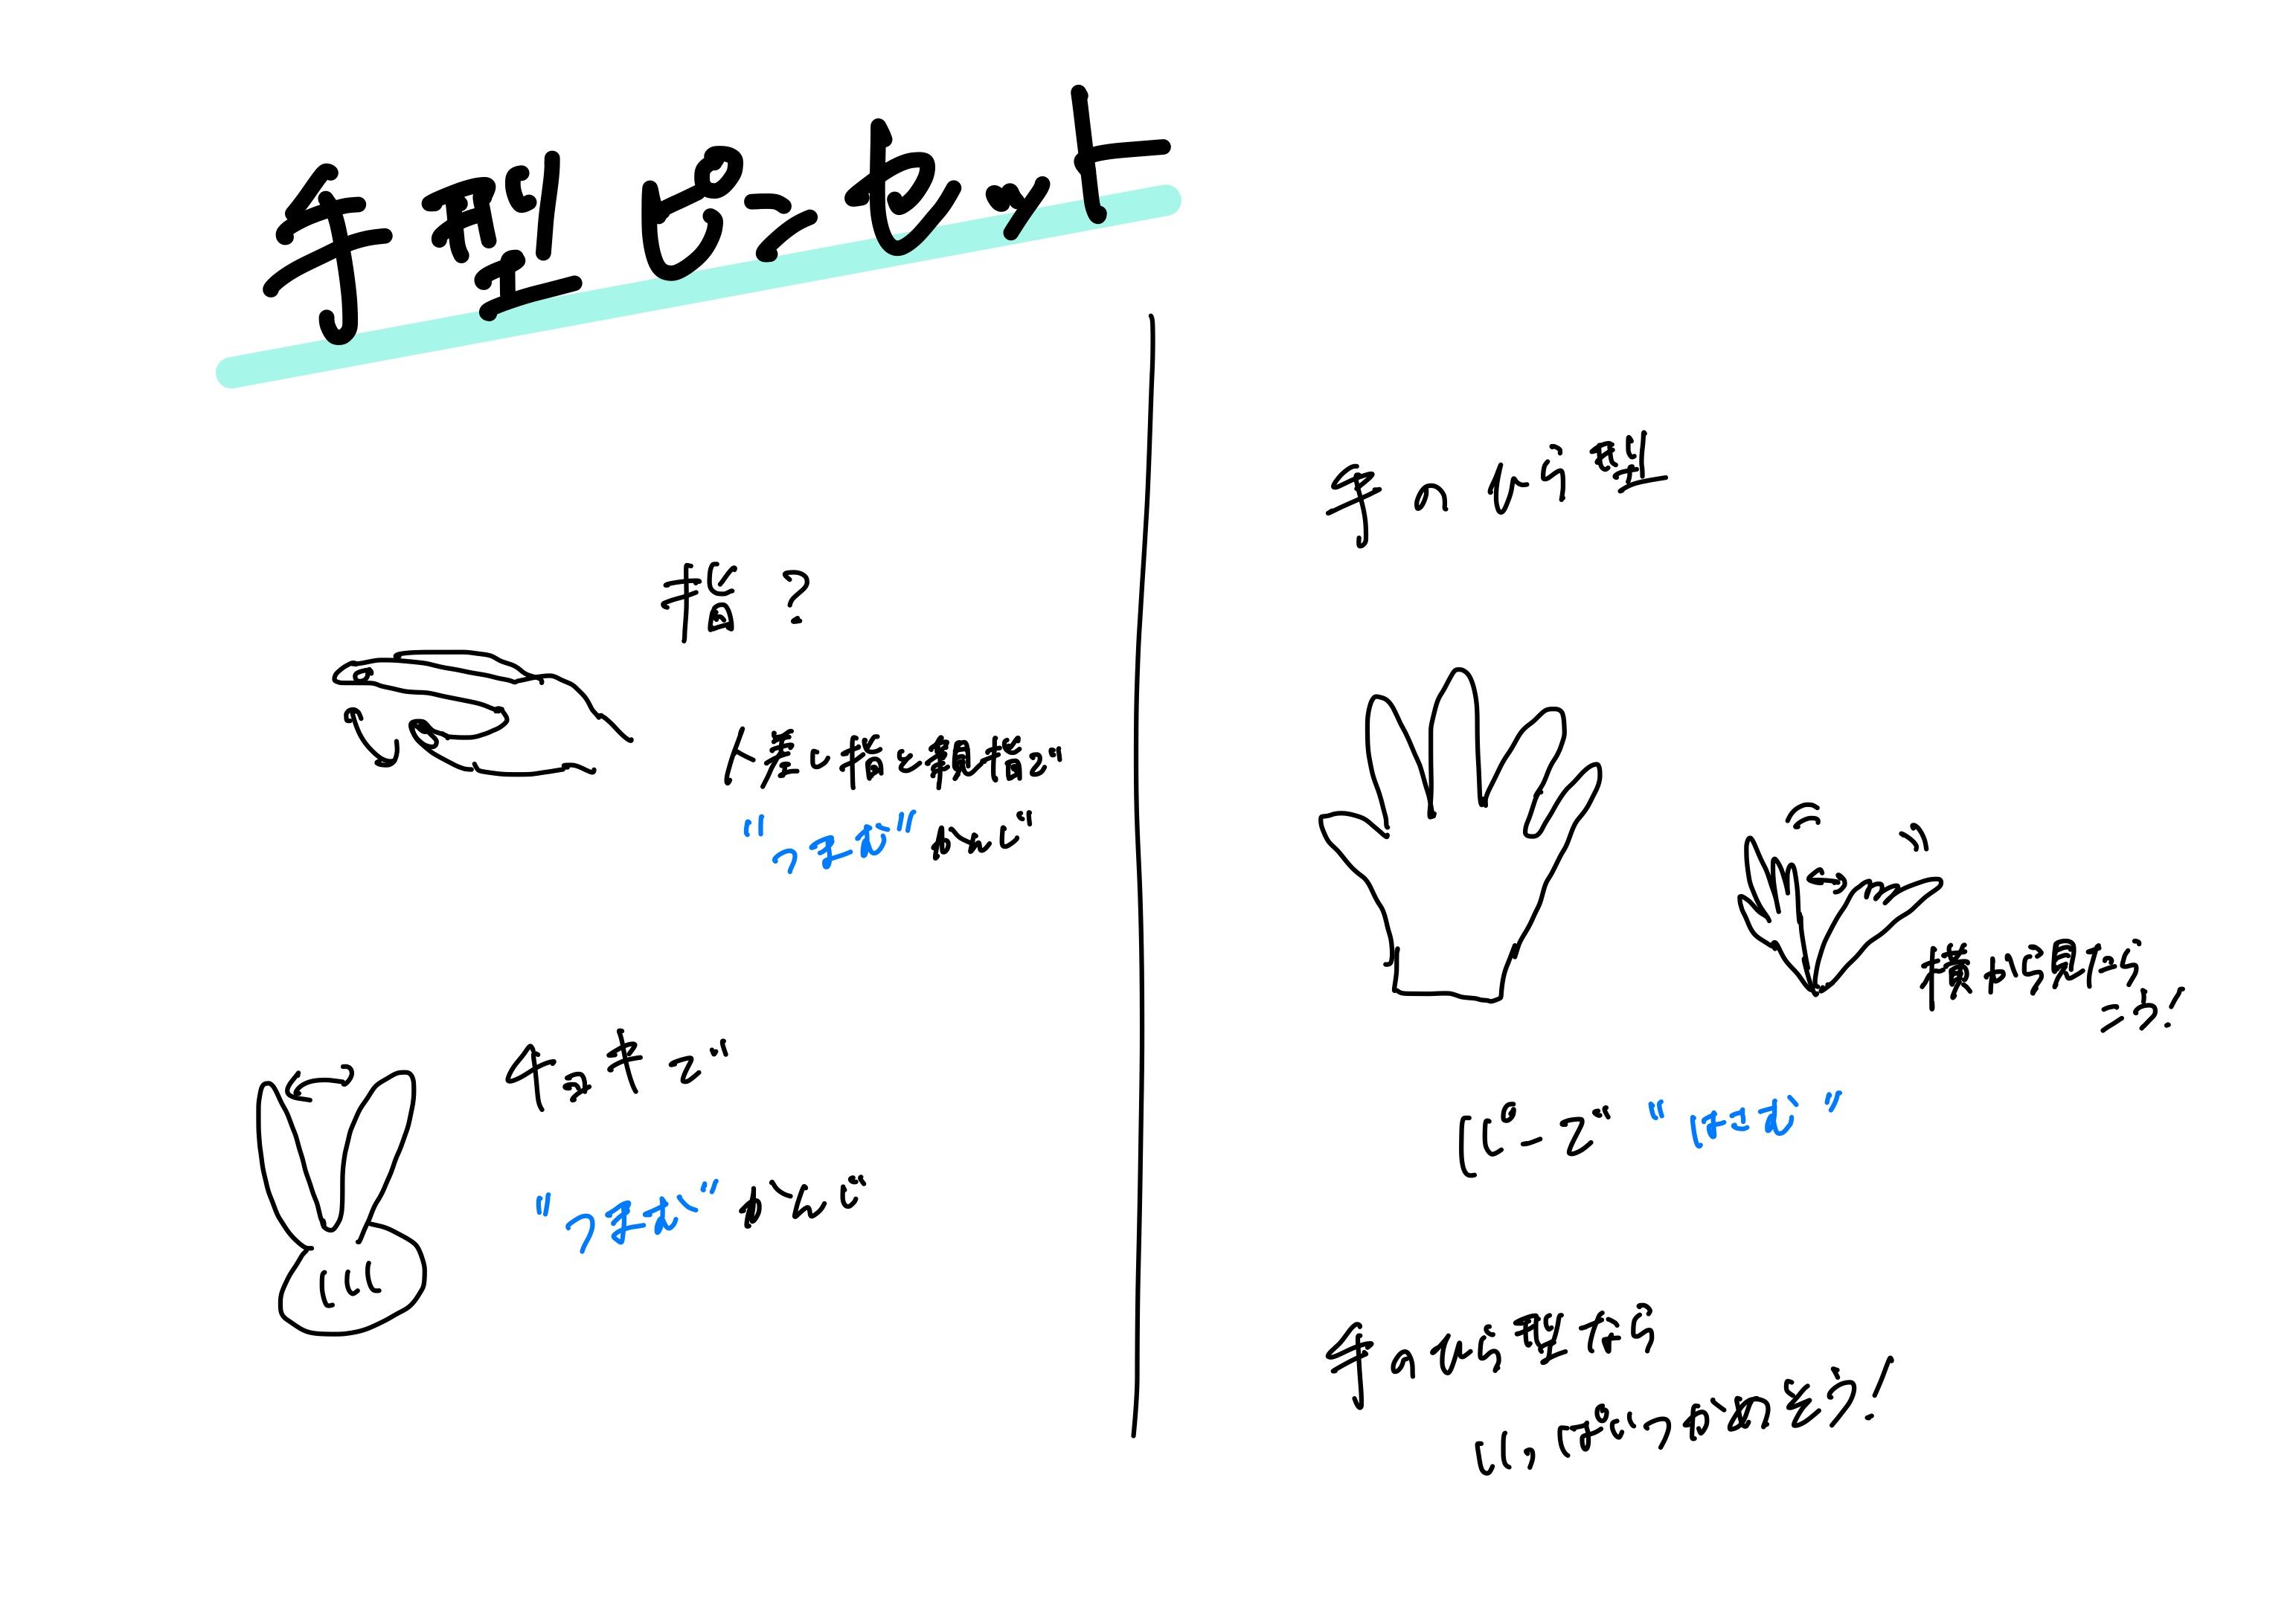 手型ピンセット
指?
人差し指と親指で
"つまむ"かんじ
チョキで
"つまむ"かんじ
手のひら型
横から見たら
こう!
パーで"はさむ"
手のひら型なら
いっぱいつかめそう!